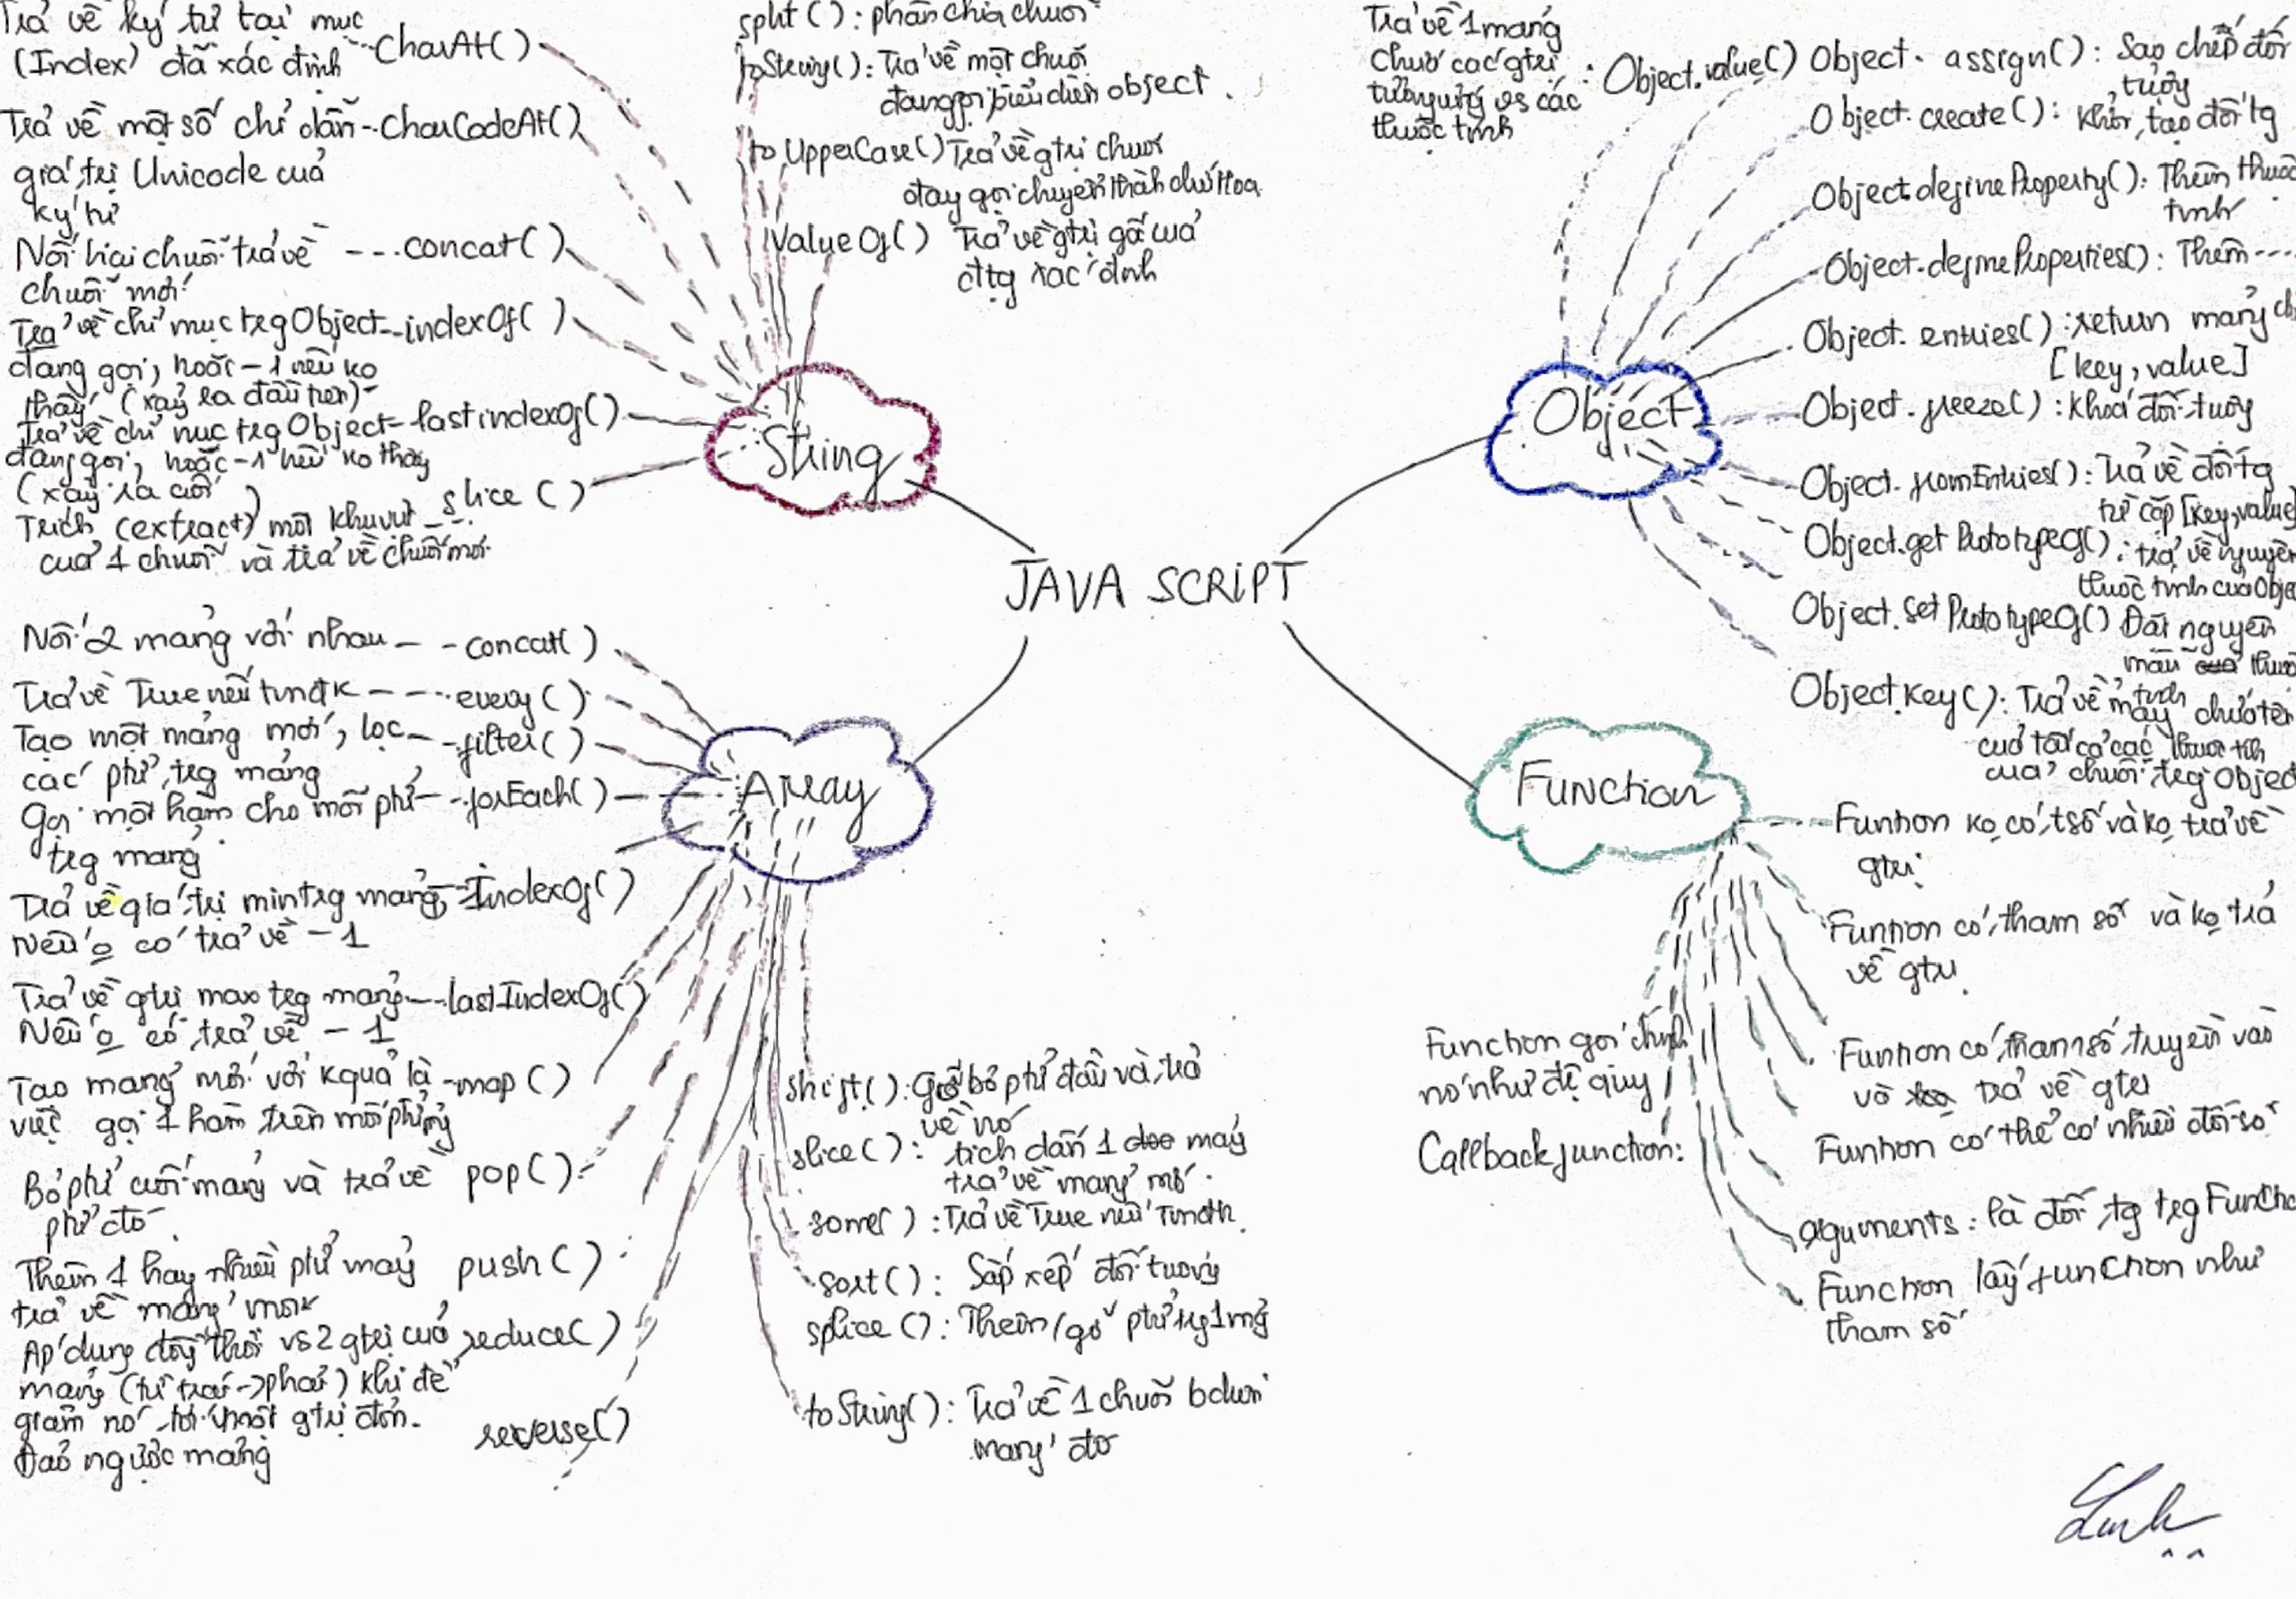 Trả về ký tự tại mục
(Index) đã xác định -- CharAt()
Trả về một số chỉ dẫn -- CharCodeAt()
giá trị Unicode của
ký tự
Nối hai chuỗi trả về --- concat()
chuỗi mới
Trả về chỉ mục trg Object -- indexOf()
đang gọi, hoặc -1 nếu ko
thấy (xảy ra đầu tiên)
Trả về chỉ mục trg Object - lastindexOf()
đang gọi, hoặc -1 nếu ko thấy
(xảy ra cuối)
Trích (extract) một khu vực -- slice()
của 1 chuỗi và trả về chuỗi mới
split(): phân chia chuỗi
toString(): Trả về một chuỗi
đang gọi biểu diễn object.
toUpperCase() Trả về gtrị chuỗi
đang gọi chuyển thành chữ Hoa
ValueOf() Trả về gtrị gốc của
đttg xác định
String
Trả về 1 mảng
chứa các gtrị
tương ứng vs các
thuộc tính
: Object.value()
Object.assign(): Sao chép đối
tượng
Object.create(): Khởi tạo đối tg
Object.defineProperty(): Thêm thuộc
tính
Object.defineProperties(): Thêm ----
Object.entries(): return mảng
[key, value]
Object.freeze(): Khoá đối tượng
Object.fromEntries(): Trả về đối tg
từ cặp [key, value
Object.getPrototypeOf(): trả về nguyên
thuộc tính của Obje
Object.setPrototypeOf() Đặt nguyên
mẫu
tính
Object.Key(): Trả về mảng chứa tên
của tất cả các thuộc tính
của chuỗi trg Object
Object
JAVA SCRIPT
Nối 2 mảng với nhau -- concat()
Trả về True nếu tmđk ---- every()
Tạo một mảng mới, lọc -- filter()
các ptử trg mảng
Gọi một hàm cho mỗi ptử -- forEach()
trg mảng
Trả về giá trị min trg mảng, -- IndexOf()
Nếu o có trả về -1
Trả về gtrị max trg mảng -- lastIndexOf()
Nếu o có trả về -1
Tạo mảng mới với kquả là - map()
việc gọi 1 hàm trên mỗi ptử mảng
Bỏ ptử cuối mảng và trả về pop()
ptử đó
Thêm 1 hay nhiều ptử mảng push()
trả về mảng mới
Áp dụng đồng thời vs 2 gtrị của reduce()
mảng (từ trái -> phải) khi để
giảm nó tới một gtrị đơn.
Đảo ngược mảng reverse()
Array
shift(): Gỡ bỏ ptử đầu và trả
về nó
slice(): tích dẫn 1 mảng
trả về mảng mới
some(): Trả về True nếu Tmđk
sort(): Sắp xếp đối tượng
splice(): Thêm/gỡ ptử trg 1 mg
toString(): Trả về 1 chuỗi bdiễn
mảng đó
Function
Funtion ko có tsố và ko trả về
gtrị
Funtion có tham số và ko trả
về gtrị.
Funtion có tham số truyền vào
và trả về gtrị
Funtion có thể có nhiều đối số
aguments: là đối tg trg Functio
Function lấy function như
tham số
Function gọi chính
nó như đệ quy
Callback function:
Linh